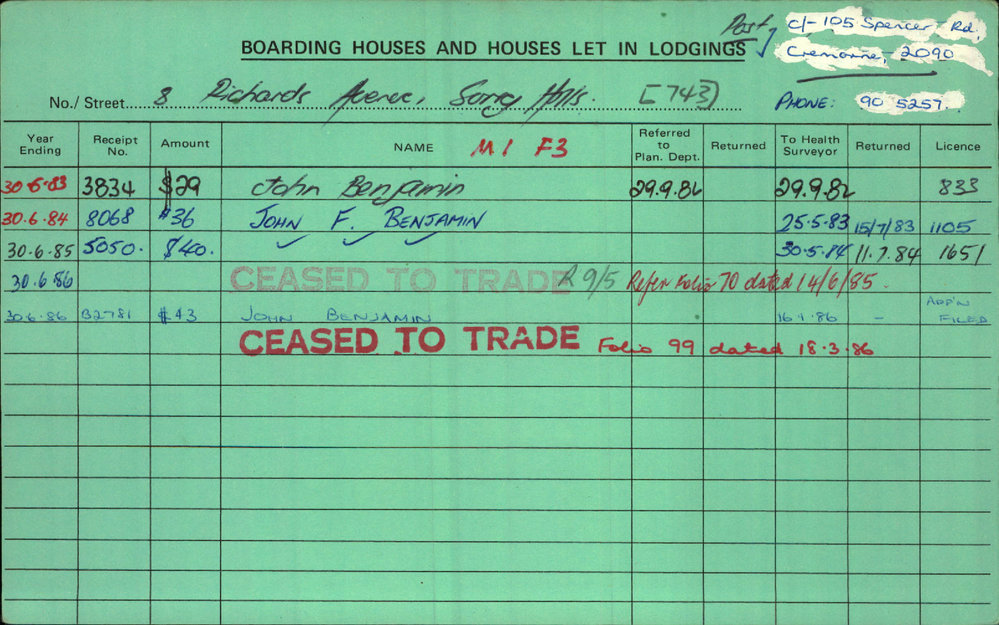 Post c/- 105 Spencer Rd,
BOARDING HOUSES AND HOUSES LET IN LODGINGS
Cremorne, 2090
No./ Street 8 Richards Avenue, Surry Hills. [743]
PHONE: 90 5257
Year Ending Receipt No. Amount NAME M1 F3 Referred to Plan. Dept. Returned To Health Surveyor Returned Licence
30-6-83 3834 $29 John Benjamin 29.9.82 29.9.82 833
30.6.84 8068 $36 JOHN F. BENJAMIN 25-5-83 15/7/83 1105
30.6.85 5050. $40. 30-5-84 11.7.84 1651
30.6.86 CEASED TO TRADE R 9/5 Refer Folio 70 dated 14/6/85.
30.6.86 B2781 $43 JOHN BENJAMIN 16.1.86 - APP'N FILED
CEASED TO TRADE Folio 99 dated 18.3.86